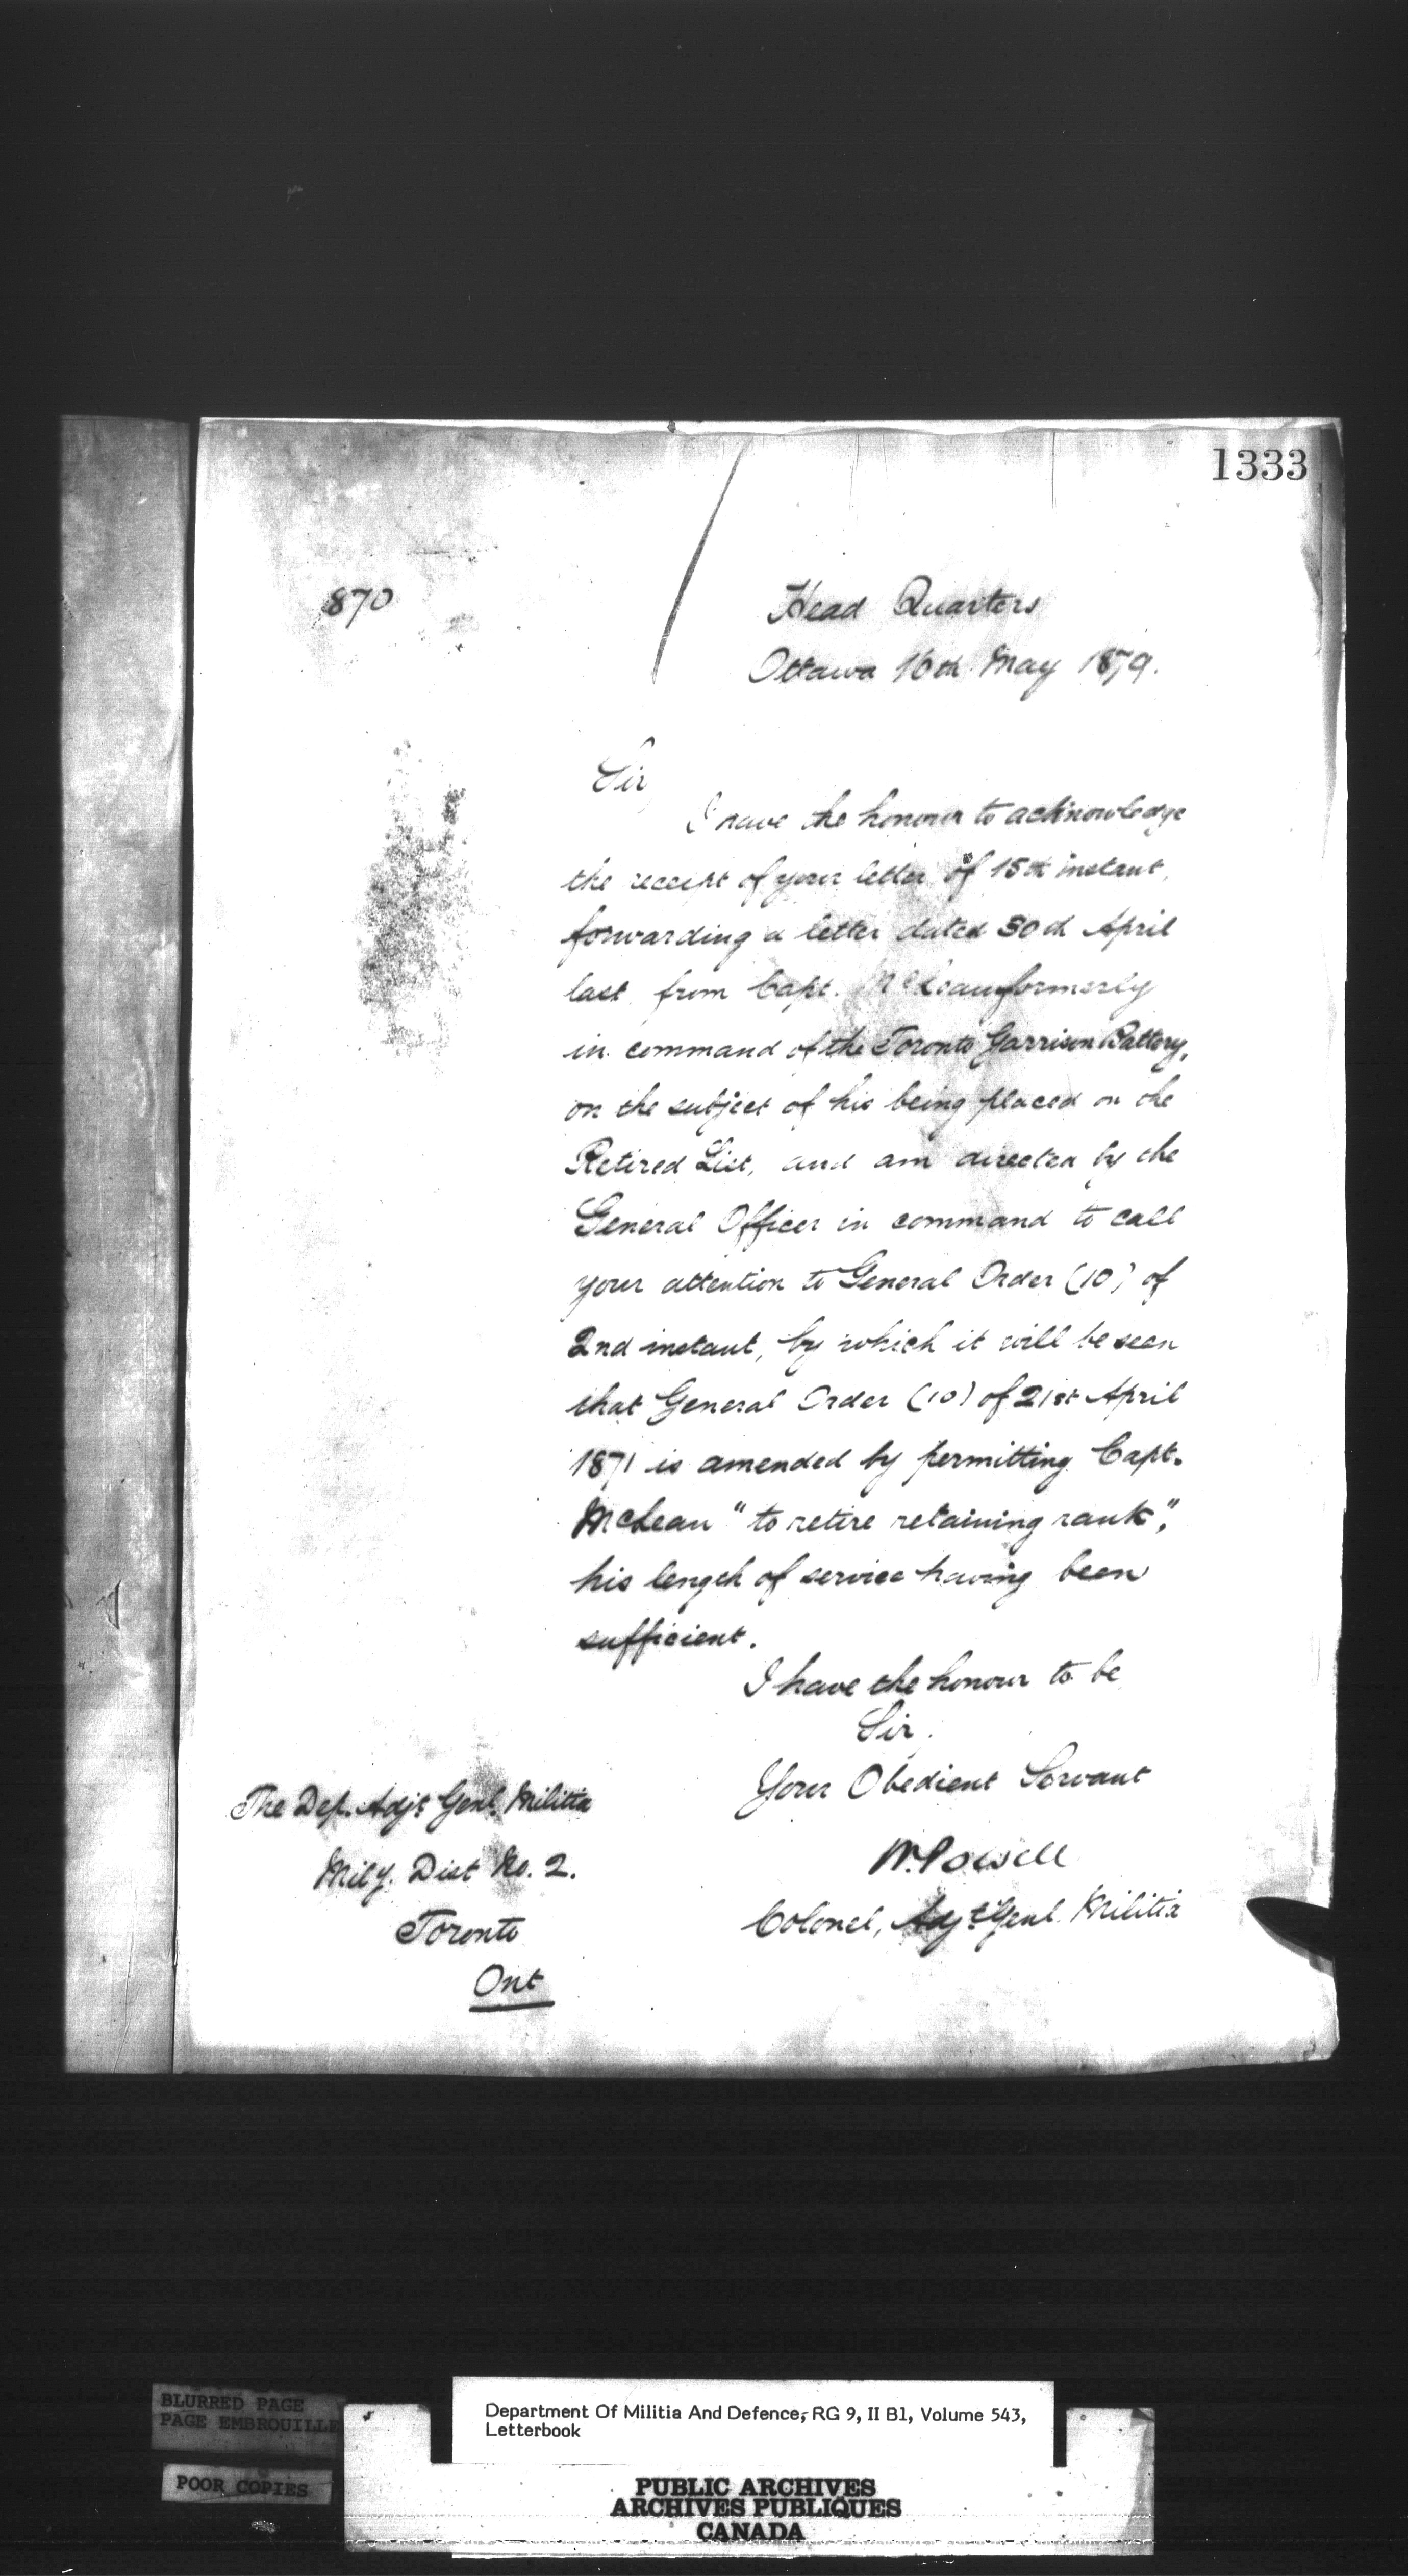 1333
870
Head Quarters
Ottawa 16th May 1879.
Sir,
I have the honour to acknowledge
the receipt of your letter of 15th instant,
forwarding a letter dated 30th April
last from Capt. McLean formerly
in command of the Toronto Garrison Battery,
on the subject of his being placed on the
Retired List, and am directed by the
General Officer in command to call
your attention to General Order (10) of
2nd instant, by which it will be seen
that General Order (10) of 21st April
1871 is amended by permitting Capt.
McLean "to retire retaining rank",
his length of service having been
sufficient.
I have the honour to be
Sir.
Your Obedient Servant
W. Powell
Colonel, Adjt Genl. Militia
The Dep. Adjt Genl. Militia
Mily. Dist No. 2.
Toronto
Ont
BLURRED PAGE
PAGE EMBROUILLE
POOR COPIES
Department Of Militia And Defence, RG 9, II B1, Volume 543,
Letterbook
PUBLIC ARCHIVES
ARCHIVES PUBLIQUES
CANADA